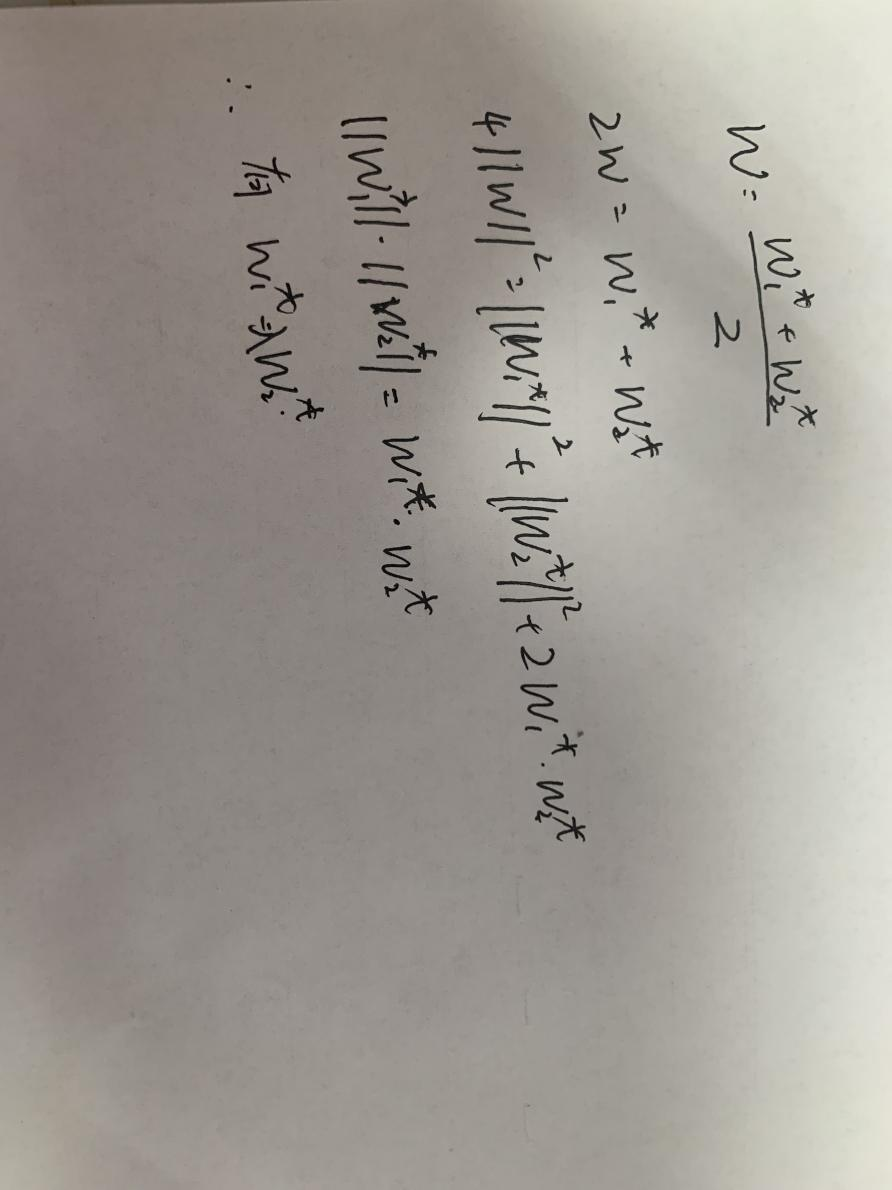 W = (W₁* + W₂*) / 2
2W = W₁* + W₂*
4||W||² = ||W₁*||² + ||W₂*||² + 2W₁*·W₂*
||W₁*||·||W₂*|| = W₁*·W₂*
∴ W₁* = λW₂*.